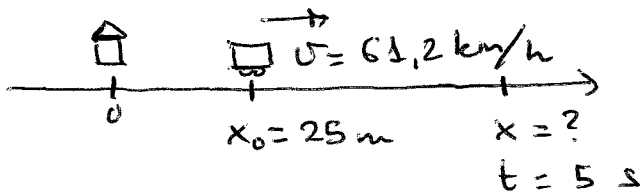 v = 61,2 km/h
0
x₀ = 25 m
x = ?
t = 5 s